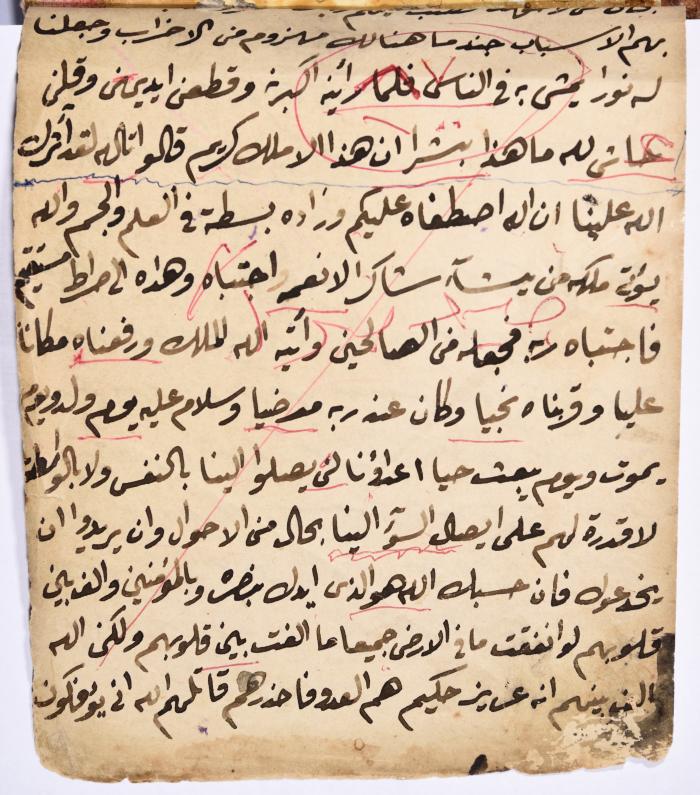 بهم الاسباب جند ما هنالك مهزوم من الاحزاب وجعلنا
له نورا يمشى به فى الناس فلما رائينه اكبرنه وقطعن ايديهن وقلن
حاش لله ما هذا بشرا ان هذا الا ملك كريم قالوا تالله لقد آثرك
الله علينا ان الله اصطفاه عليكم وزاده بسطة فى العلم والجسم والله
يؤتى ملكه من يشآء شاكرا لانعمه اجتباه وهداه الى صراط مستقيم
فاجتباه ربه فجعله من الصالحين وآتيه الله الملك ورفعناه مكانا
عليا وقربناه نجيا وكان عند ربه مرضيا وسلام عليه يوم ولد ويوم
يموت ويوم يبعث حيا اعداؤنا لن يصلوا الينا بالنفس ولا بالواسطة
لا قدرة لهم على ايصال السوء الينا بحال من الاحوال وان يريدوا ان
يخدعوك فان حسبك الله هو الذى ايدك بنصره وبالمؤمنين والف بين
قلوبهم لو انفقت ما فى الارض جميعا ما الفت بين قلوبهم ولكن الله
الف بينهم انه عزيز حكيم هم العدو فاحذرهم قاتلهم الله انى يؤفكون